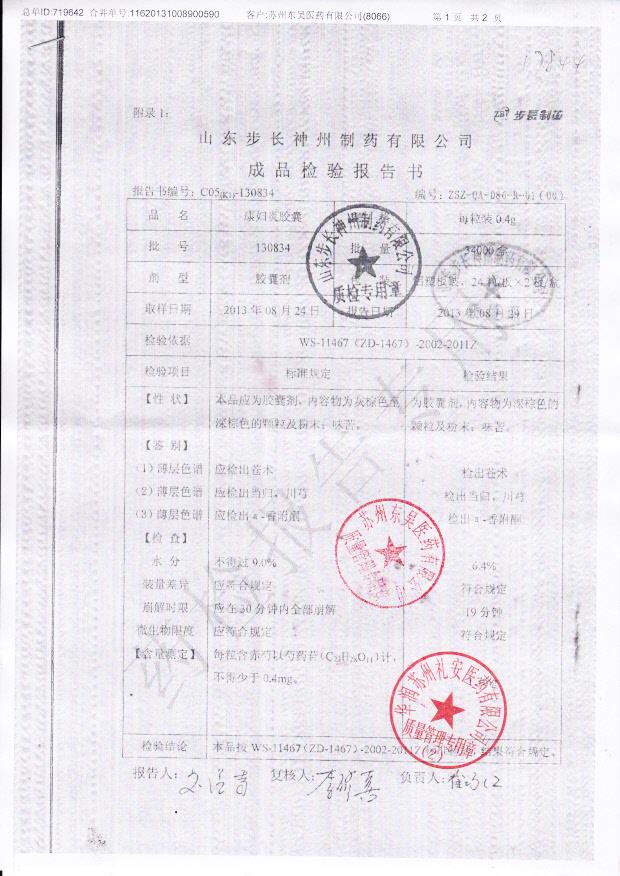 总单ID:719642 合并单号:11620131008900590 客户:苏州东吴医药有限公司(8066) 第 1 页 共 2 页
附录1:
步长制药
山东步长神州制药有限公司
成品检验报告书
报告书编号: C05(K1)-130834 编号: ZSZ-QA-086-R-01(00)
品 名 康妇炎胶囊 每粒装 0.4g
批 号 130834 批 量 34000盒
剂 型 胶囊剂 包 装 铝塑板装, 24粒/板×2板/盒
取样日期 2013年08月24日 报告日期 2013年08月29日
检验依据 WS-11467(ZD-1467)-2002-2011Z
检验项目 标准规定 检验结果
【性 状】 本品应为胶囊剂,内容物为灰棕色至 为胶囊剂,内容物为深棕色的
深棕色的颗粒及粉末;味苦。 颗粒及粉末;味苦。
【鉴 别】
(1)薄层色谱 应检出苍术 检出苍术
(2)薄层色谱 应检出当归、川芎 检出当归、川芎
(3)薄层色谱 应检出α-香附酮 检出α-香附酮
【检 查】
水 分 不得过 9.0% 6.4%
装量差异 应符合规定 符合规定
崩解时限 应在30分钟内全部崩解 19分钟
微生物限度 应符合规定 符合规定
【含量测定】 每粒含赤芍以芍药苷(C23H28O11)计,
不得少于 0.4mg。
检验结论 本品按 WS-11467(ZD-1467)-2002-2011Z 结果符合规定。
报告人: 复核人: 负责人:
山东步长神州制药有限公司
质检专用章
苏州东吴医药有限公司
质量管理专用章
华润苏州礼安医药有限公司
质量管理专用章
(2)
药检报告专用